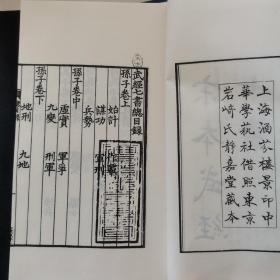 上海涵芬樓景印中
華學藝社借照東京
岩崎氏靜嘉堂藏本
武經七書總目錄
孫子卷上
始計
謀功
兵勢
孫子卷中
虛實 軍爭
九變
孫子卷下
地刑 九地